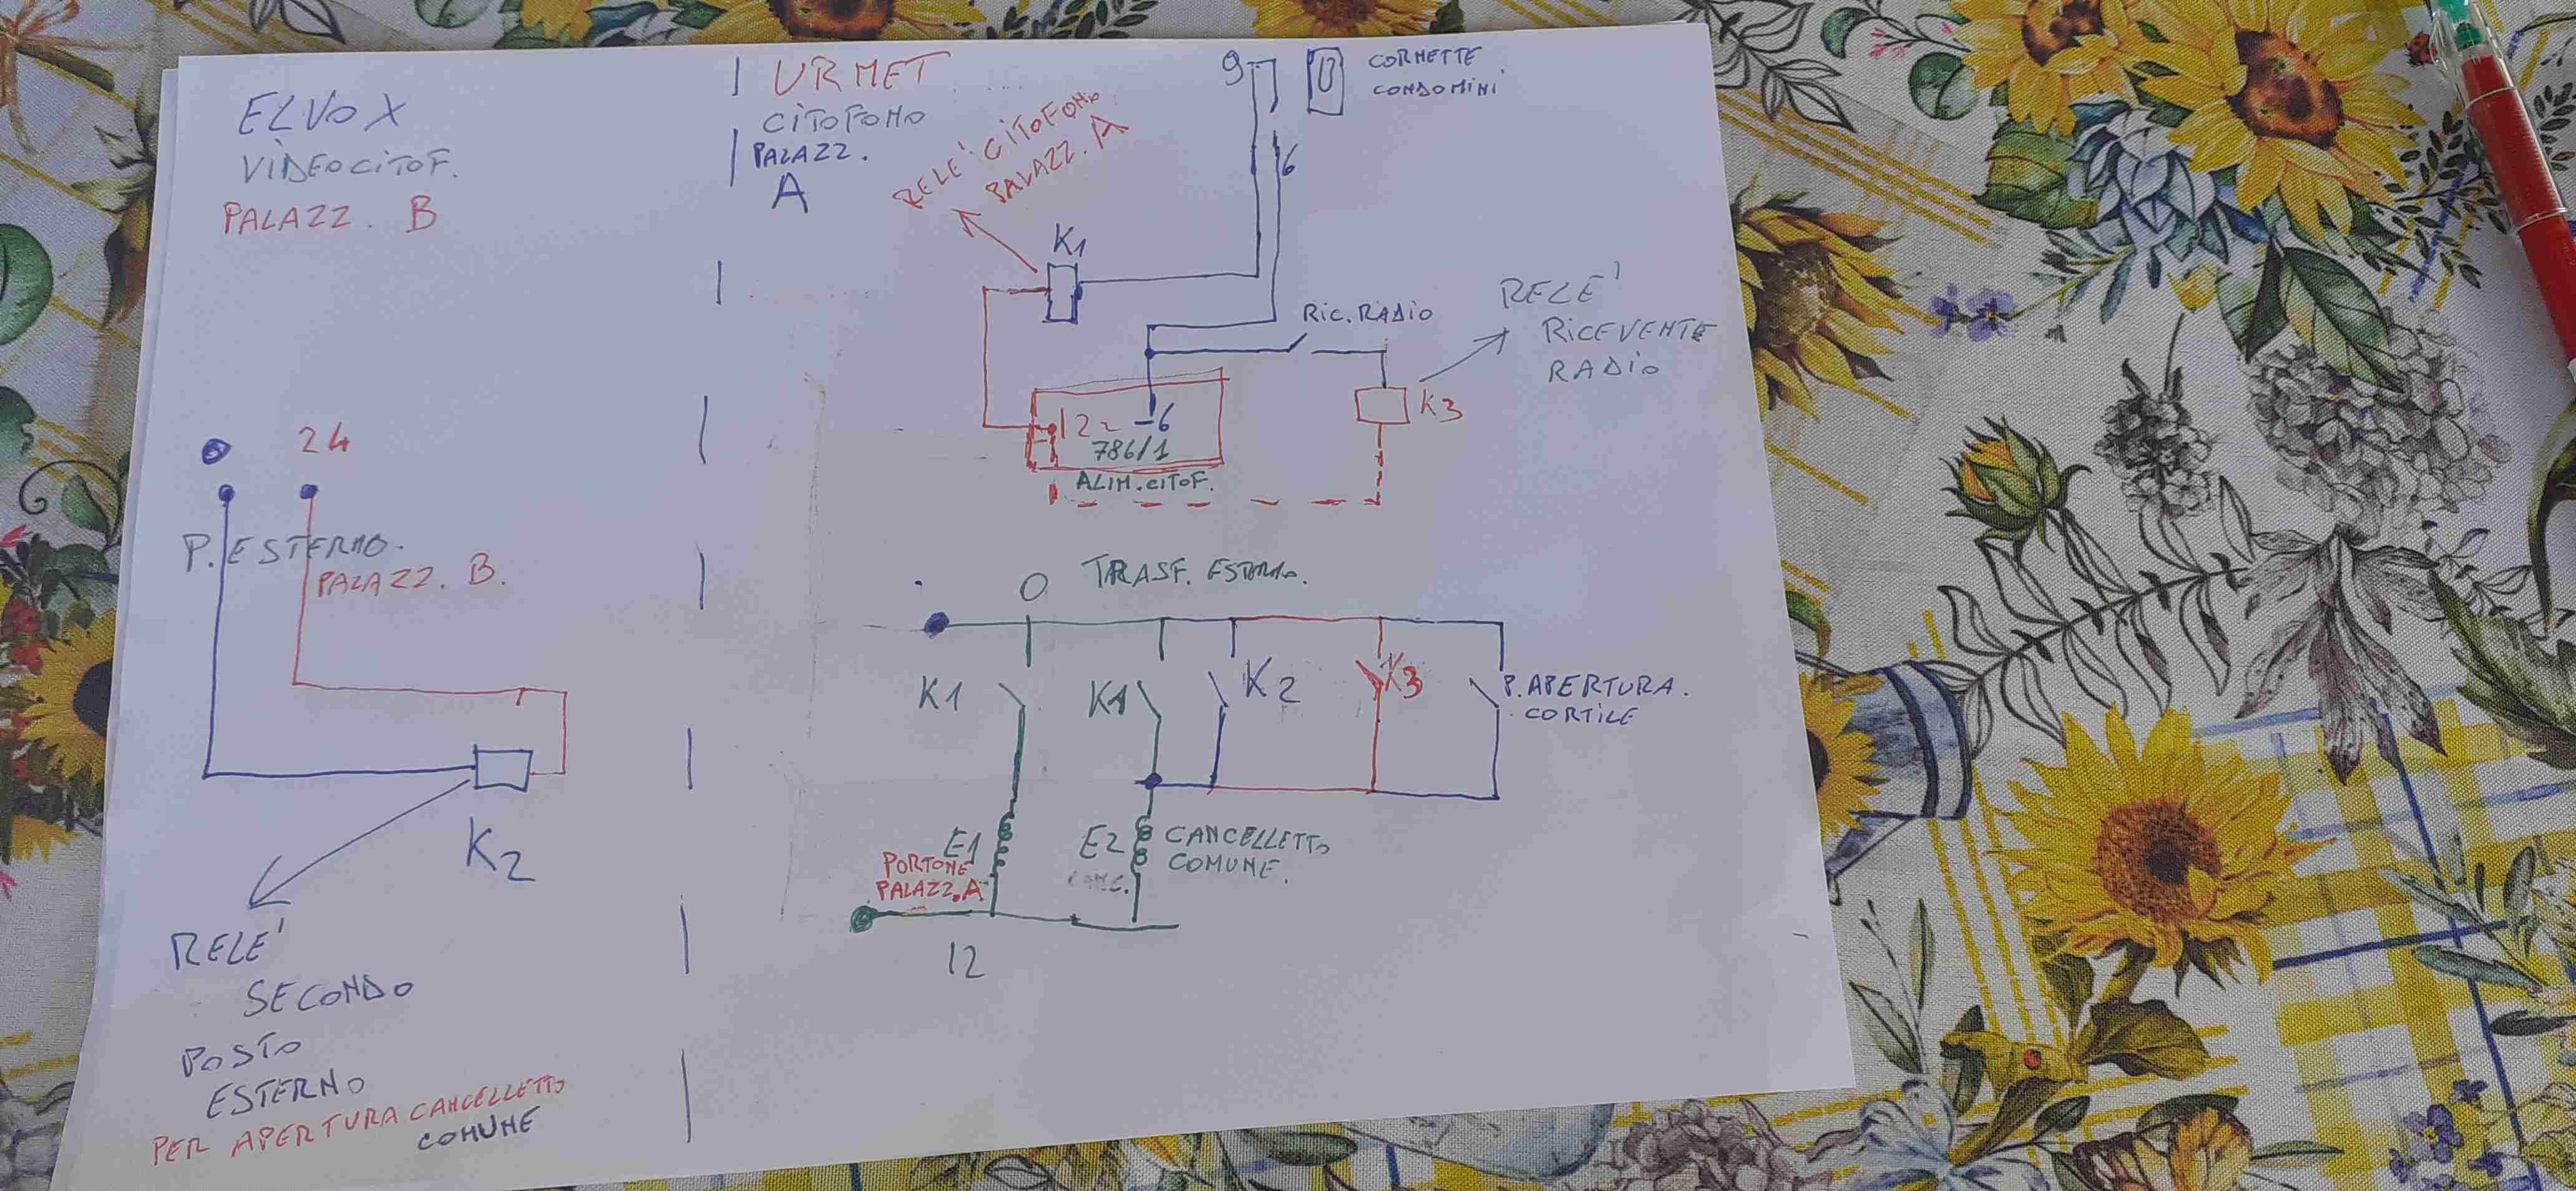 ELVOX
VIDEOCITOF.
PALAZZ. B
24
P. ESTERNO.
PALAZZ. B.
K2
RELE'
SECONDO
POSTO
ESTERNO
PER APERTURA CANCELLETTO
COMUNE
URMET
CITOFONO
PALAZZ.
A
RELE' CITOFONO
PALAZZ. A
K1
9
CORNETTE
CONDOMINI
6
RIC. RADIO
RELE'
RICEVENTE
RADIO
K3
12~ -6
786/1
ALIM. CITOF.
0 TRASF. ESTERNO.
K1
K1
K2
K3
P. APERTURA.
CORTILE
E1
PORTONE
PALAZZ. A
E2 CANCELLETTO
COMUNE.
12